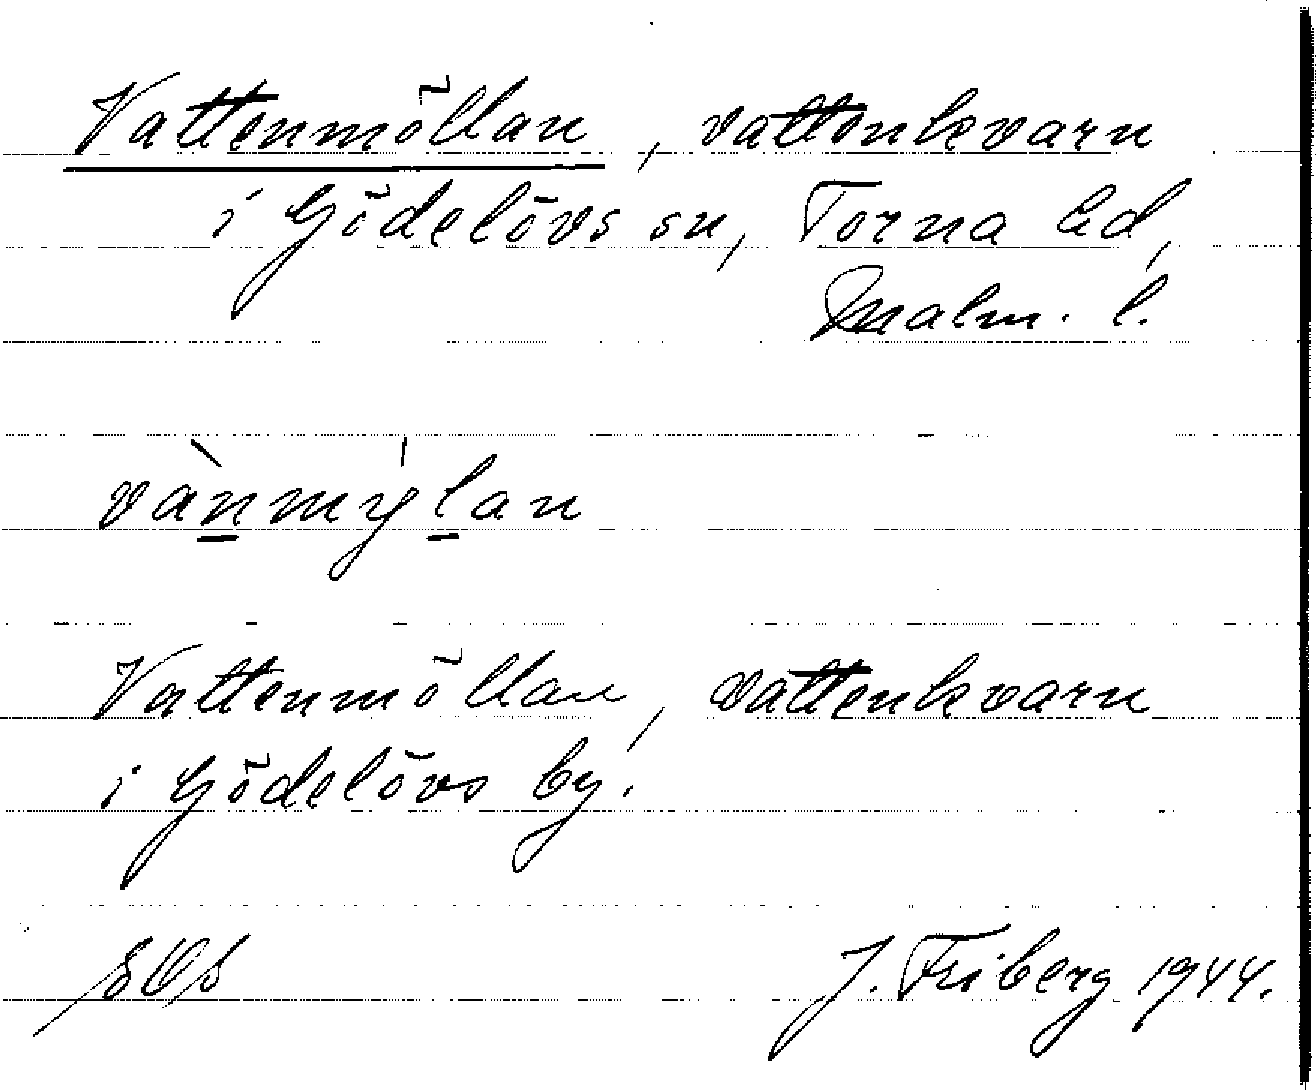 Vattenmöllan, vattenkvarn
i Gödelövs sn, Torna hd,
Malm. l.
vànmýlan
Vattenmöllan, vattenkvarn
i Gödelövs by.
J. Friberg 1944.